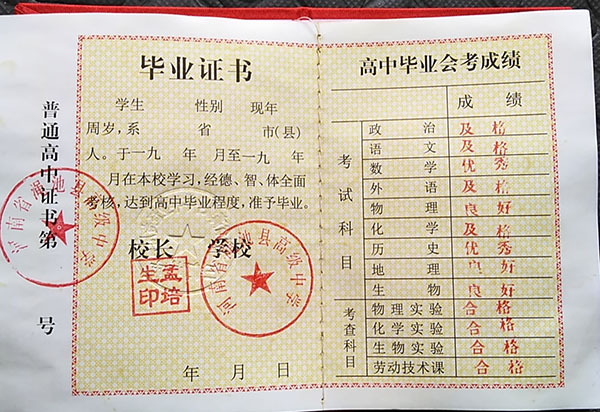 普通高中证书第 号
毕业证书
学生 性别 现年
周岁，系 省 市(县)
人。于一九 年 月至一九 年
月在本校学习，经德、智、体全面
考核，达到高中毕业程度，准予毕业。
校长 学校
孟培生印
河南省渑池县高级中学
河南省渑池县高级中学
年 月 日
高中毕业会考成绩
成 绩
考试科目
政 治 及 格
语 文 及 格
数 学 优 秀
外 语 及 格
物 理 良 好
化 学 及 格
历 史 优 秀
地 理 良 好
生 物 良 好
考查科目
物理实验 合 格
化学实验 合 格
生物实验 合 格
劳动技术课 合 格